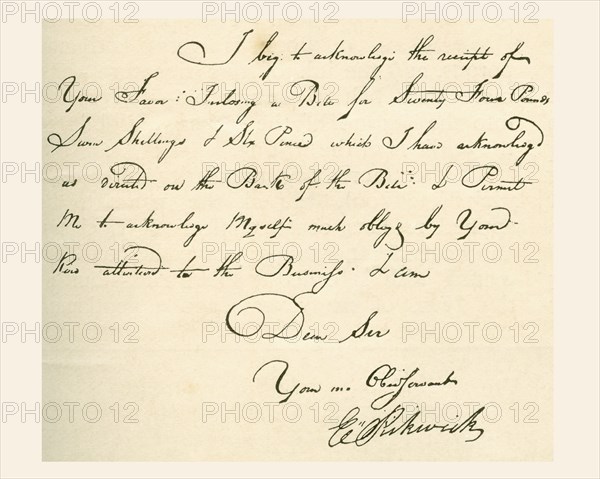 I beg to acknowledge the receipt of
Your Favor: Inclosing a Bill for Seventy Four Pounds
Seven Shillings & Six Pence which I have acknowledg'd
as directed on the Back of the Bill: & Permit
Me to acknowledge Myself much oblig'd by Your
attention to the Business. I am
Dear Sir
Your mo. Obt Servant
Pickwick
PHOTO 12